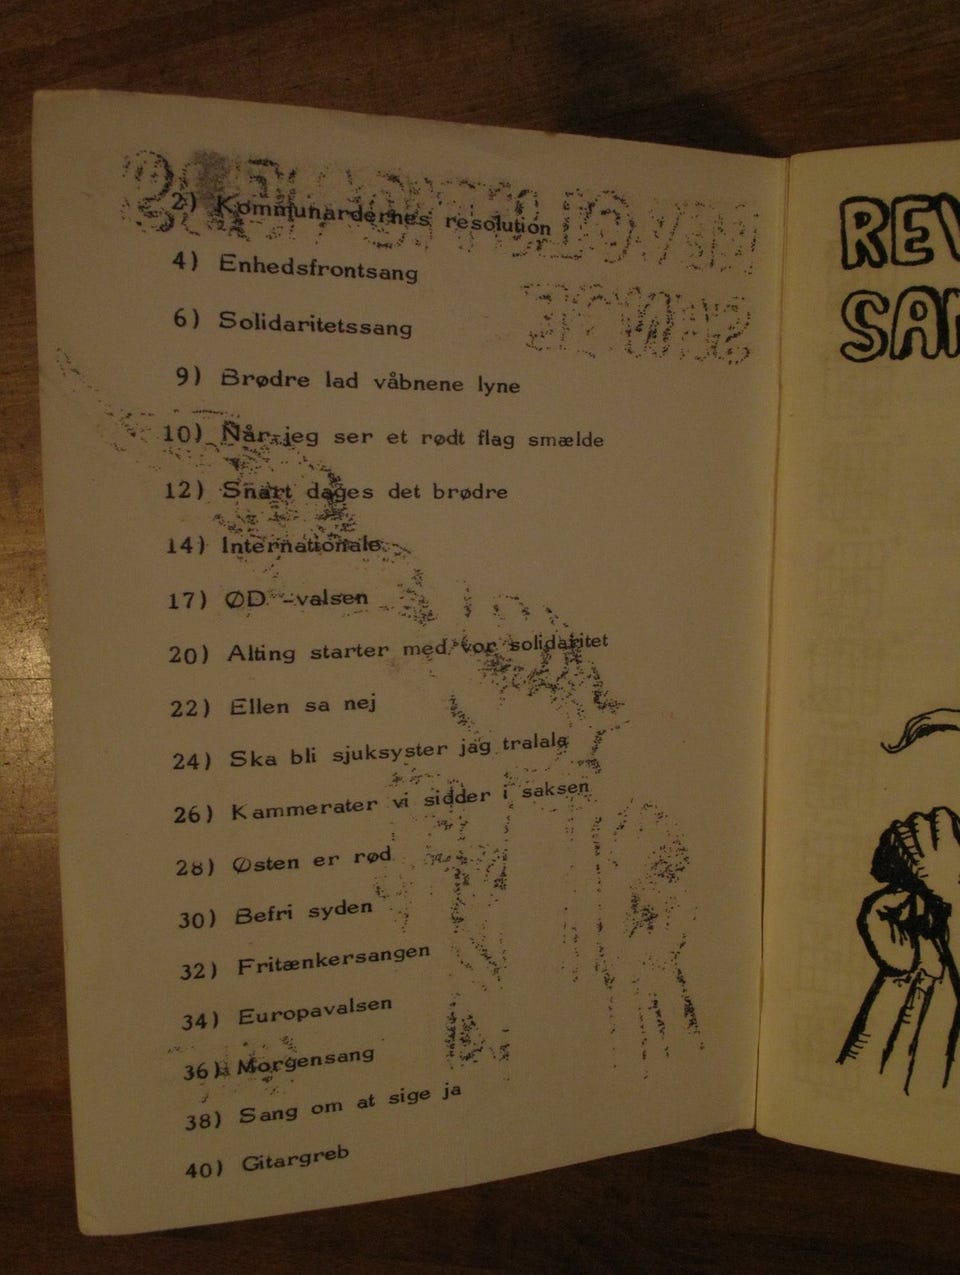 2) Kommunardernes resolution
4) Enhedsfrontsang
6) Solidaritetssang
9) Brødre lad våbnene lyne
10) Når jeg ser et rødt flag smælde
12) Snart dages det brødre
14) Internationale
17) ØD -valsen
20) Alting starter med vor solidaritet
22) Ellen sa nej
24) Ska bli sjuksyster jag tralala
26) Kammerater vi sidder i saksen
28) Østen er rød
30) Befri syden
32) Fritænkersangen
34) Europavalsen
36) Morgensang
38) Sang om at sige ja
40) Gitargreb
REV
SAN